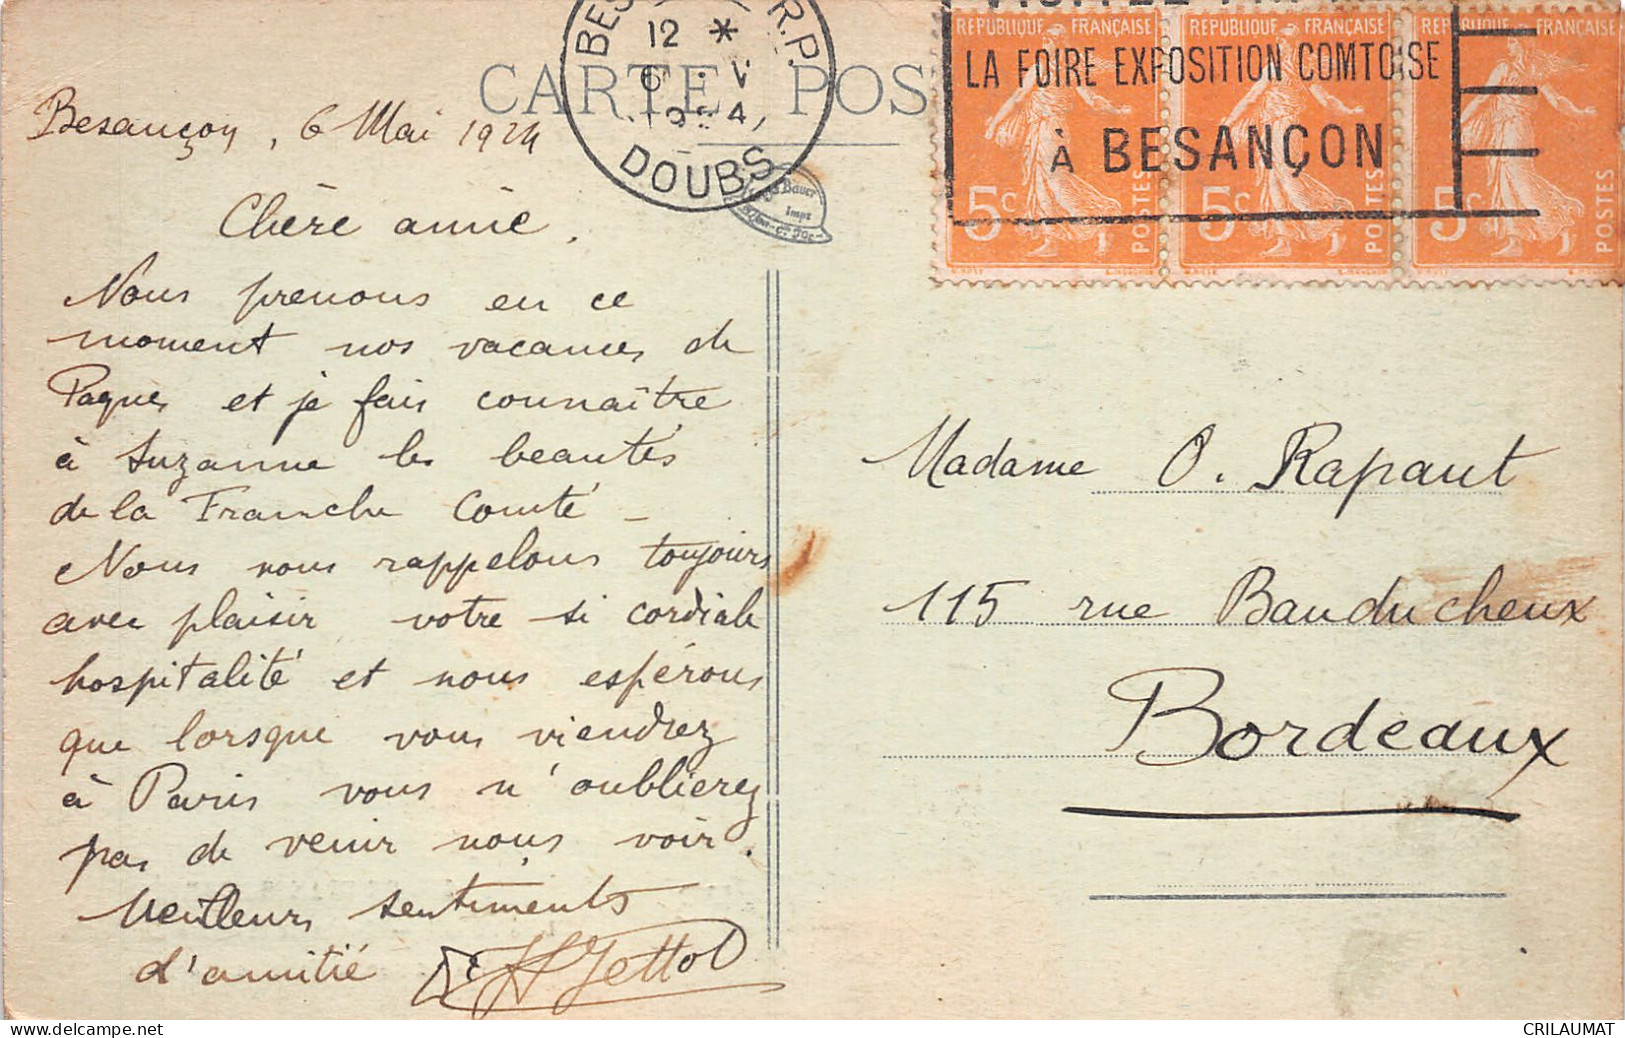 CARTE POS
BES R.P.
12 *
6 V
DOUBS
LA FOIRE EXPOSITION COMTOISE
À BESANÇON
REPUBLIQUE FRANÇAISE REPUBLIQUE FRANÇAISE REPUBLIQUE FRANÇAISE
5c POSTES 5c POSTES 5c POSTES
Bauer
Impr
Besançon, 6 Mai 1924
Chère amie,
Nous prenons en ce
moment nos vacances de
Paques et je fais connaître
à Suzanne les beautés
de la Franche Comté –
Nous nous rappelons toujours
avec plaisir votre si cordiale
hospitalité et nous espérons
que lorsque vous viendrez
à Paris vous n'oublierez
pas de venir nous voir.
Meilleurs sentiments
d'amitié
Madame O. Rapaut
115 rue Bauducheux
Bordeaux
CRILAUMAT